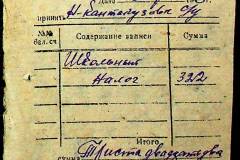 Дата
принять Н-Кантакузовк с/у
№№ бал.сч Содержание записи Сумма
Школьный
Налог 322
Итого
Сумма Триста двадцать два